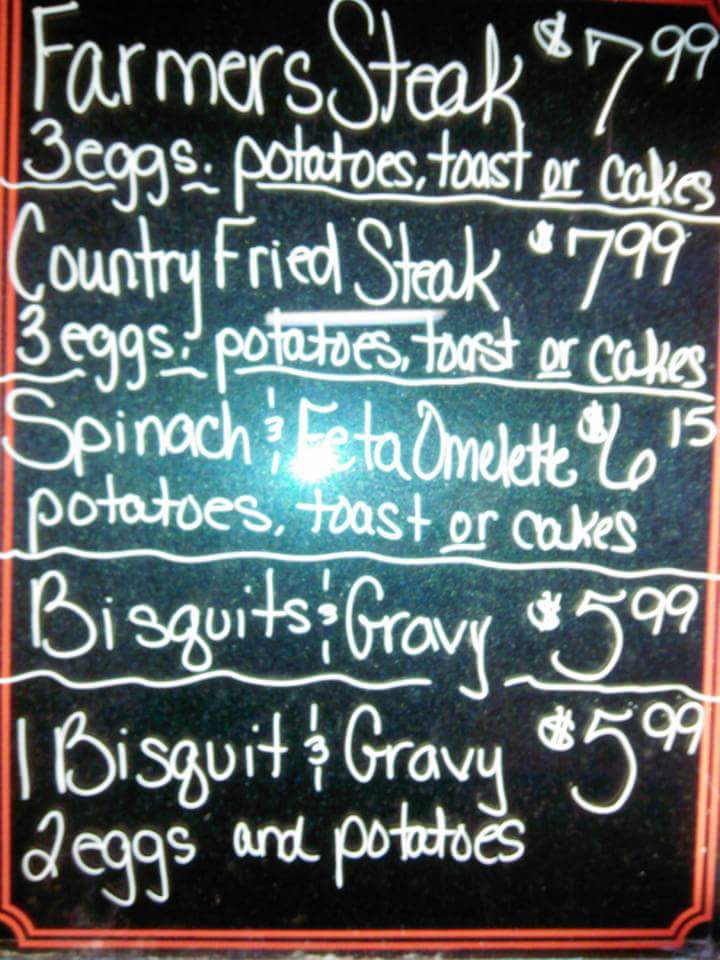 Farmers Steak $7.99
3 eggs. potatoes, toast or cakes
Country Fried Steak $7.99
3 eggs. potatoes, toast or cakes
Spinach & Feta Omelette $6.15
potatoes, toast or cakes
Bisquits & Gravy $5.99
1 Bisquit & Gravy $5.99
2 eggs and potatoes